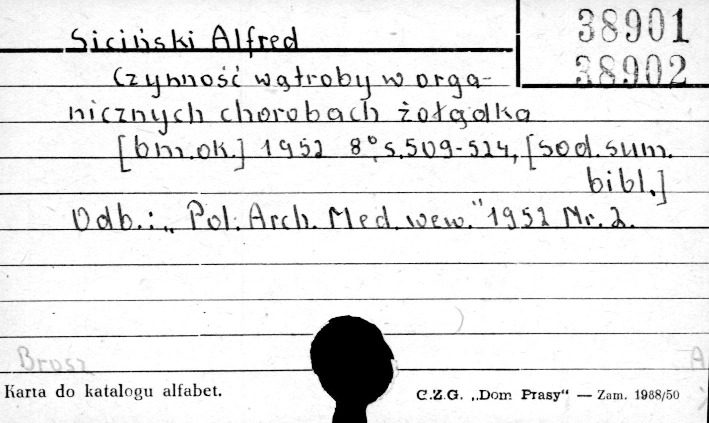 Siciński Alfred
38901
38902
Czynność wątroby w orga-
nicznych chorobach żołądka
[bm.ok.] 1952 8°, s.509-524, [sod.sum.
bibl.]
Odb.: „Pol. Arch. Med. wew." 1952 Nr. 2.
Brosz
A
Karta do katalogu alfabet.
C.Z.G. „Dom Prasy“ — Zam. 1988/50